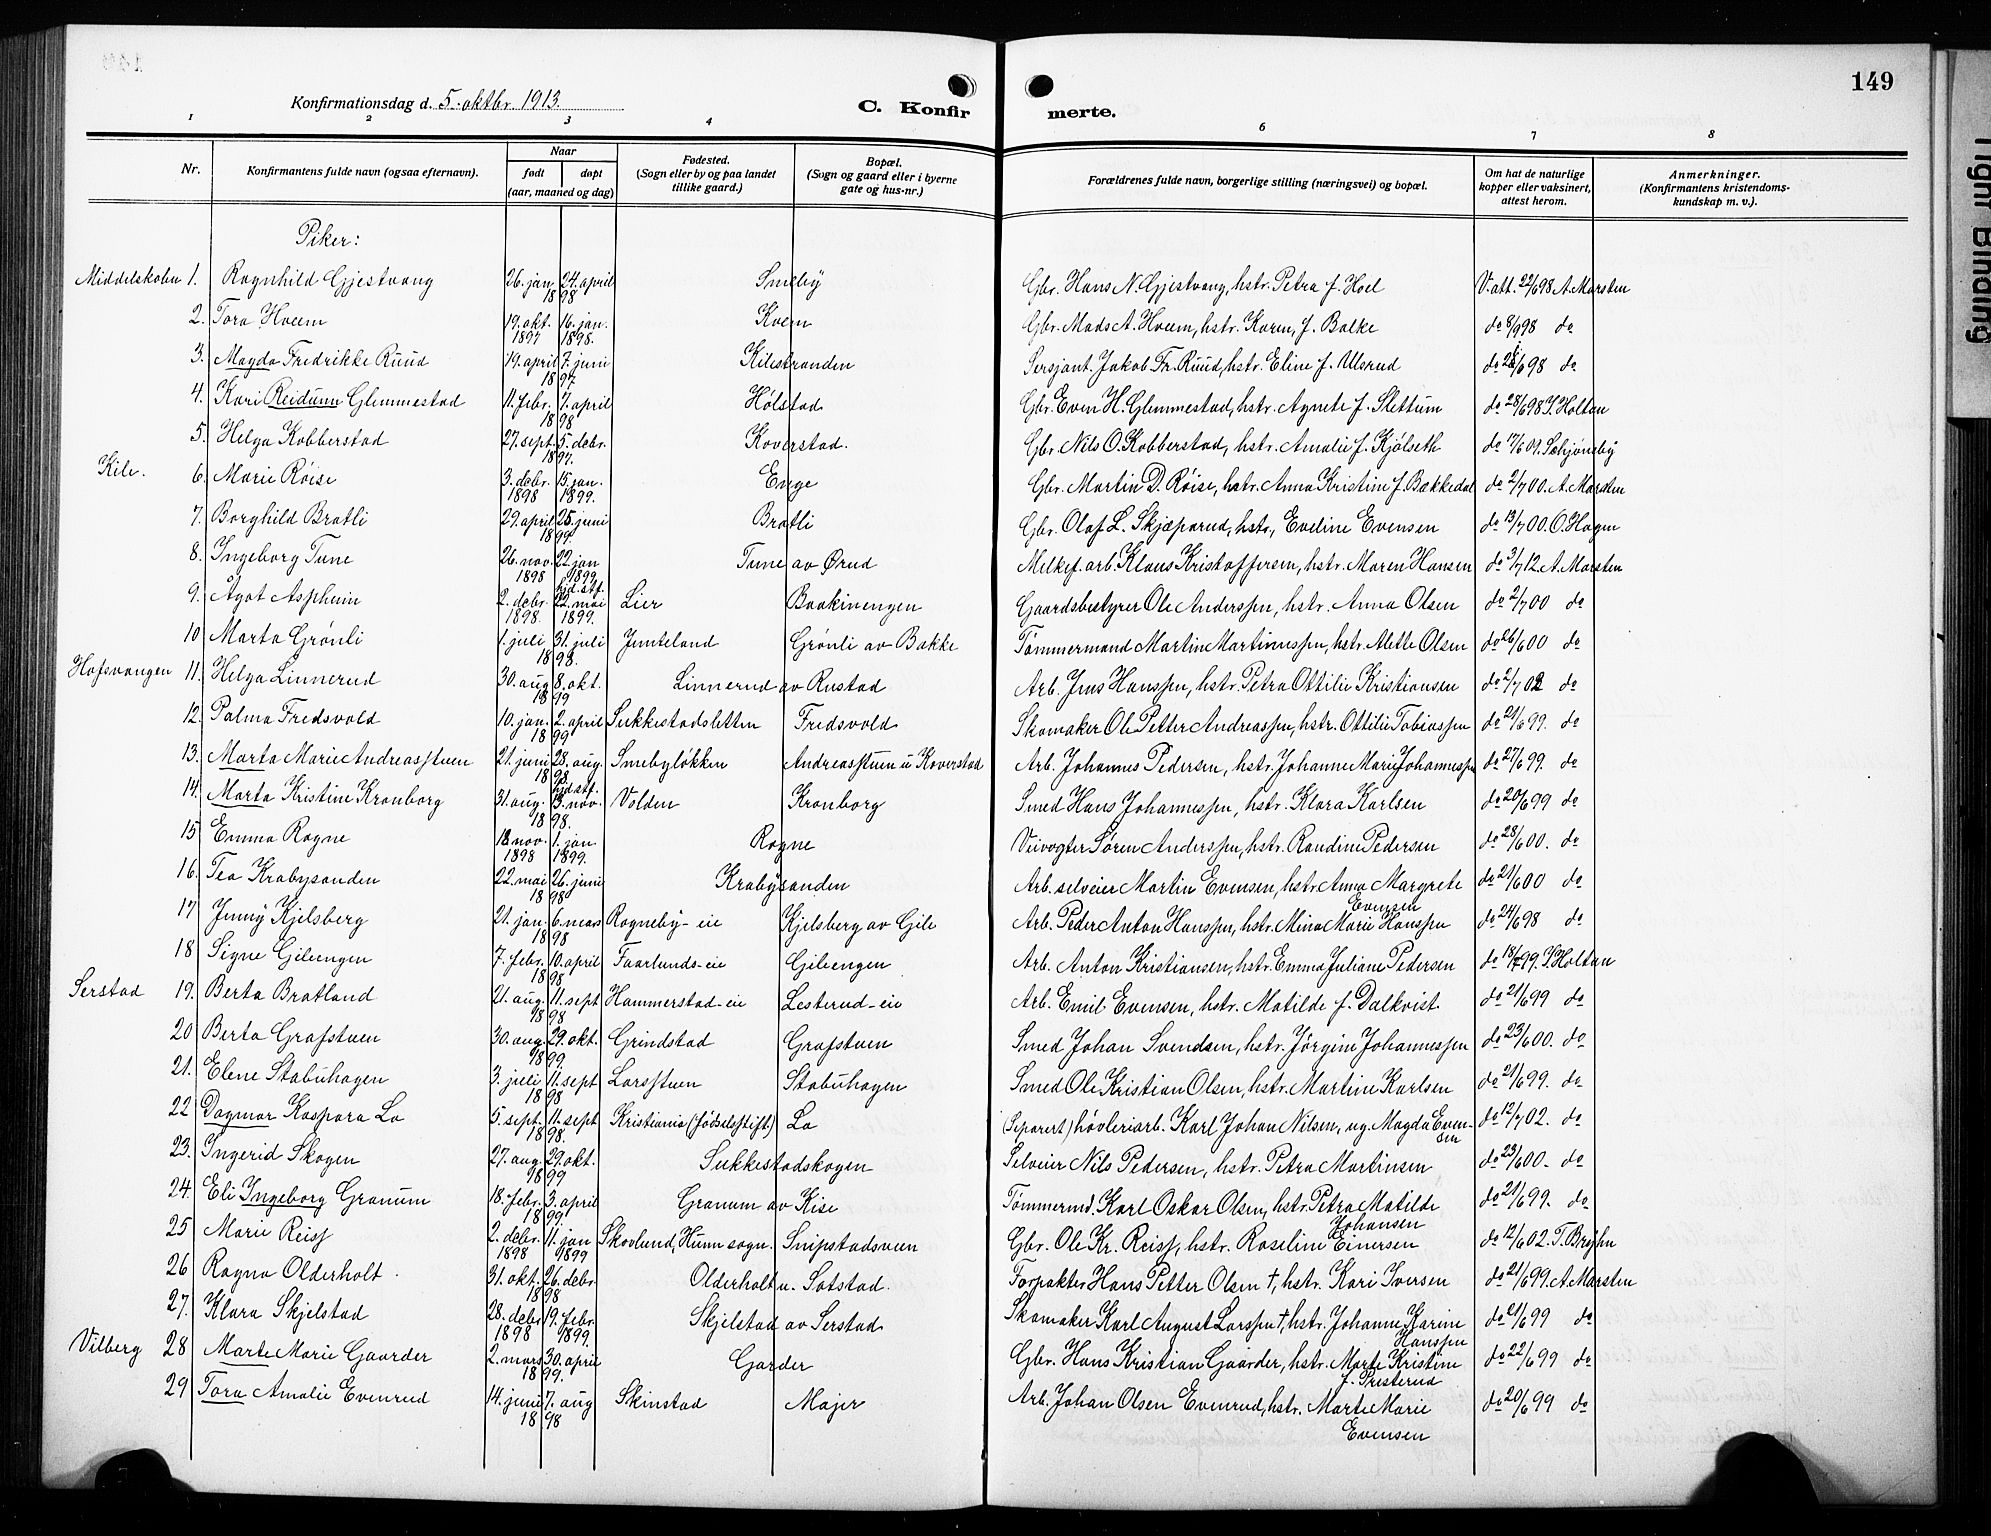 149
Konfirmationsdag d. 5. oktbr. 1913.
C. Konfir merte.
1 2 3 4 6 7 8
Nr. Konfirmantens fulde navn (ogsaa efternavn). Naar født døpt (aar, maaned og dag) Fødested. (Sogn eller by og paa landet tillike gaard.) Bopæl. (Sogn og gaard eller i byerne gate og hus-nr.) Forældrenes fulde navn, borgerlige stilling (næringsvei) og bopæl. Om hat de naturlige kopper eller vaksinert, attest herom. Anmerkninger. (Konfirmantens kristendoms-kundskap m. v.).
Piker:
Middelskolen 1. Ragnhild Gjestvang 26. jan 24. april 1898 Smeby Gbr. Hans N. Gjestvang, hstr. Petra f. Hoel V. att. 22/6 98 A. Marsten
2. Tora Hveem 19. okt. 1897 16. jan. 1898. Kvem Gbr. Mads A. Hveem, hstr. Karen, f. Balke do 8/9 98 do
3. Magda Fredrikke Ruud 19. april 7. juni 1897. Kilestranden Sersjant. Jakob Fr. Ruud, hstr. Eline f. Ulsrud do 28/6 98 do
4. Kari Reidunn Glemmestad 11. febr. 7. april 1898 Hølstad Gbr. Even H. Glemmestad, hstr. Agnete f. Slettum do 28/6 98 S. Holtan
5. Helga Kobberstad 27. sept. 5. debr. 1897. Koverstad. Gbr. Nils O. Kobberstad, hstr. Amalie f. Kjølseth do 17/6 09. Schjønsby
Kile. 6. Marie Røise 3. debr. 1898 15. jan. 1899. Enge Gbr. Martin D. Røise, hstr. Anna Kristine f. Bækkedal do 2/7 00. A. Marsten
7. Borghild Bratli 29. april 25. juni 1899. Bratli Gbr. Olaf L. Skjæparud, hstr., Eveline Evensen do 13/7 00. O. Hagen
8. Ingeborg Tune 26. nov. 1898 22. jan 1899 Tune av Ørud Melkef. arb. Klaus Kristoffersen, hstr. Maren Hansen do 3/7 12 A. Marsten
9. Ågot Aspheim 2. debr. 1898. hjd. stf. 22. mai 1899. Lier Baakinengen Gaardsbestyrer Ole Anderssen, hstr. Anna Olsen do 2/7 00 do
10 Marta Grønli 1. juli 31. juli 1898. Jemteland Grønli av Bakke Tømmermand Martin Martinussen, hstr. Alette Olsen do 26/6 00 do
Hofsvangen 11. Helga Linnerud 30. aug 8. okt. 1899 Linnerud av Rustad Arb. Jens Hanssen, hstr. Petra Ottilie Kristiansen do 2/7 02 do
12. Palma Fredsvold 10. jan. 2. april 1899 Sukkestadsletten Fredsvold Skomaker Ole Petter Andreassen, hstr. Ottilie Tobiassen do 21/6 99. do
13. Marta Marie Andreasstuen 21. juni 28. aug. 1898 Smebyløkken Andreasstuen u Koverstad Arb. Johannes Pedersen, hstr. Johanne Marie Johannessen do 27/6 99. do
14. Marta Kristine Kronborg 31. aug. hjd. stf. 13. nov. 1898. Volden Kronborg Smed Hans Johannessen, hstr. Klara Karlsen do 20/6 99 do
15 Emma Rogne 18 nov. 1898 1. jan. 1899. Rogne Veivogter Søren Anderssen, hstr. Randine Pedersen do 28/6 00. do
16. Tea Krabysanden 22. mai 26. juni 1898 Krabysanden Arb. selveier Martin Evensen, hstr. Anna Margrete Evensen do 21/6 00 do
17 Jenny Kjelsberg 21. jan. 6. mars 1898 Rogneby-eie Kjelsberg av Gile Arb. Peder Anton Hanssen, hstr. Mina Marie Hanssen do 24/6 98 do
18 Signe Gileengen 7. febr. 10. april 1898 Faarlunds-eie Gileengen Arb. Anton Kristiansen, hstr. Emma Juliane Pedersen do 18/7 99. S. Holtan
Serstad 19. Berta Bratland 21. aug. 11. sept 1898 Hammerstad-eie Lesterud-eie Arb. Emil Evensen, hstr. Matilde f. Dalkvist do 21/6 99 do
20 Berta Grafstuen 30. aug. 29. okt. 1899. Grindstad Grafstuen Smed Johan Svendsen, hstr. Jørgine Johannessen do 23/6 00. do
21. Elene Stabuhagen 3. juli 11. sept 1898 Larsstuen Stabuhagen Smed Ole Kristian Olsen, hstr. Martine Karlsen do 21/6 99. do
22 Dagmar Kaspara Lo 5. sept. 11. sept 1898. Kristiania (fødselsstift.) Lo (Separert) høvleriarb. Karl Johan Nilsen, ug. Magda Evensen do 12/7 02. do
23. Ingerid Skogen 27. aug. 29. okt. 1899 Sukkestadskogen Selveier Nils Pedersen, hstr. Petra Martinsen do 23/6 00- do
24. Eli Ingeborg Granum 18. febr. 3. april 1899. Granum av Kise Tømmermd. Karl Oskar Olsen, hstr. Petra Matilde Johansen do 21/6 99. do
25 Marie Reiss 2. debr. 1898 11. jan 1899 Skovlund, Hunn sogn. Snipstadsveen Gbr. Ole Kr. Reiss, hstr. Roseline Einersen do 12/6 02. T. Bryhn
26 Ragna Olderholt. 31. okt. 26. debr. 1898 Olderholt u. Sotstad. Forpakter Hans Petter Olsen †, hstr. Kari Iversen do 21/6 99. A. Marsten
27. Klara Skjelstad 28. debr 1898 19. febr. 1899. Skjelstad av Serstad Skomaker Karl August Larssen †, hstr. Johanne Karine Hanssen do 21/6 99 do
Vilberg 28 Marte Marie Gaarder 2. mars 30. april 1899. Garder Gbr. Hans Kristian Gaarder, hstr. Marte Kristine f. Presterud do 22/6 99 do
29 Tora Amalie Evenrud 14. juni 7. aug 1898 Skinstad Majer Arb. Johan Olsen Evenrud, hstr. Marte Marie Evensen do 20/6 99 do
Tight Binding